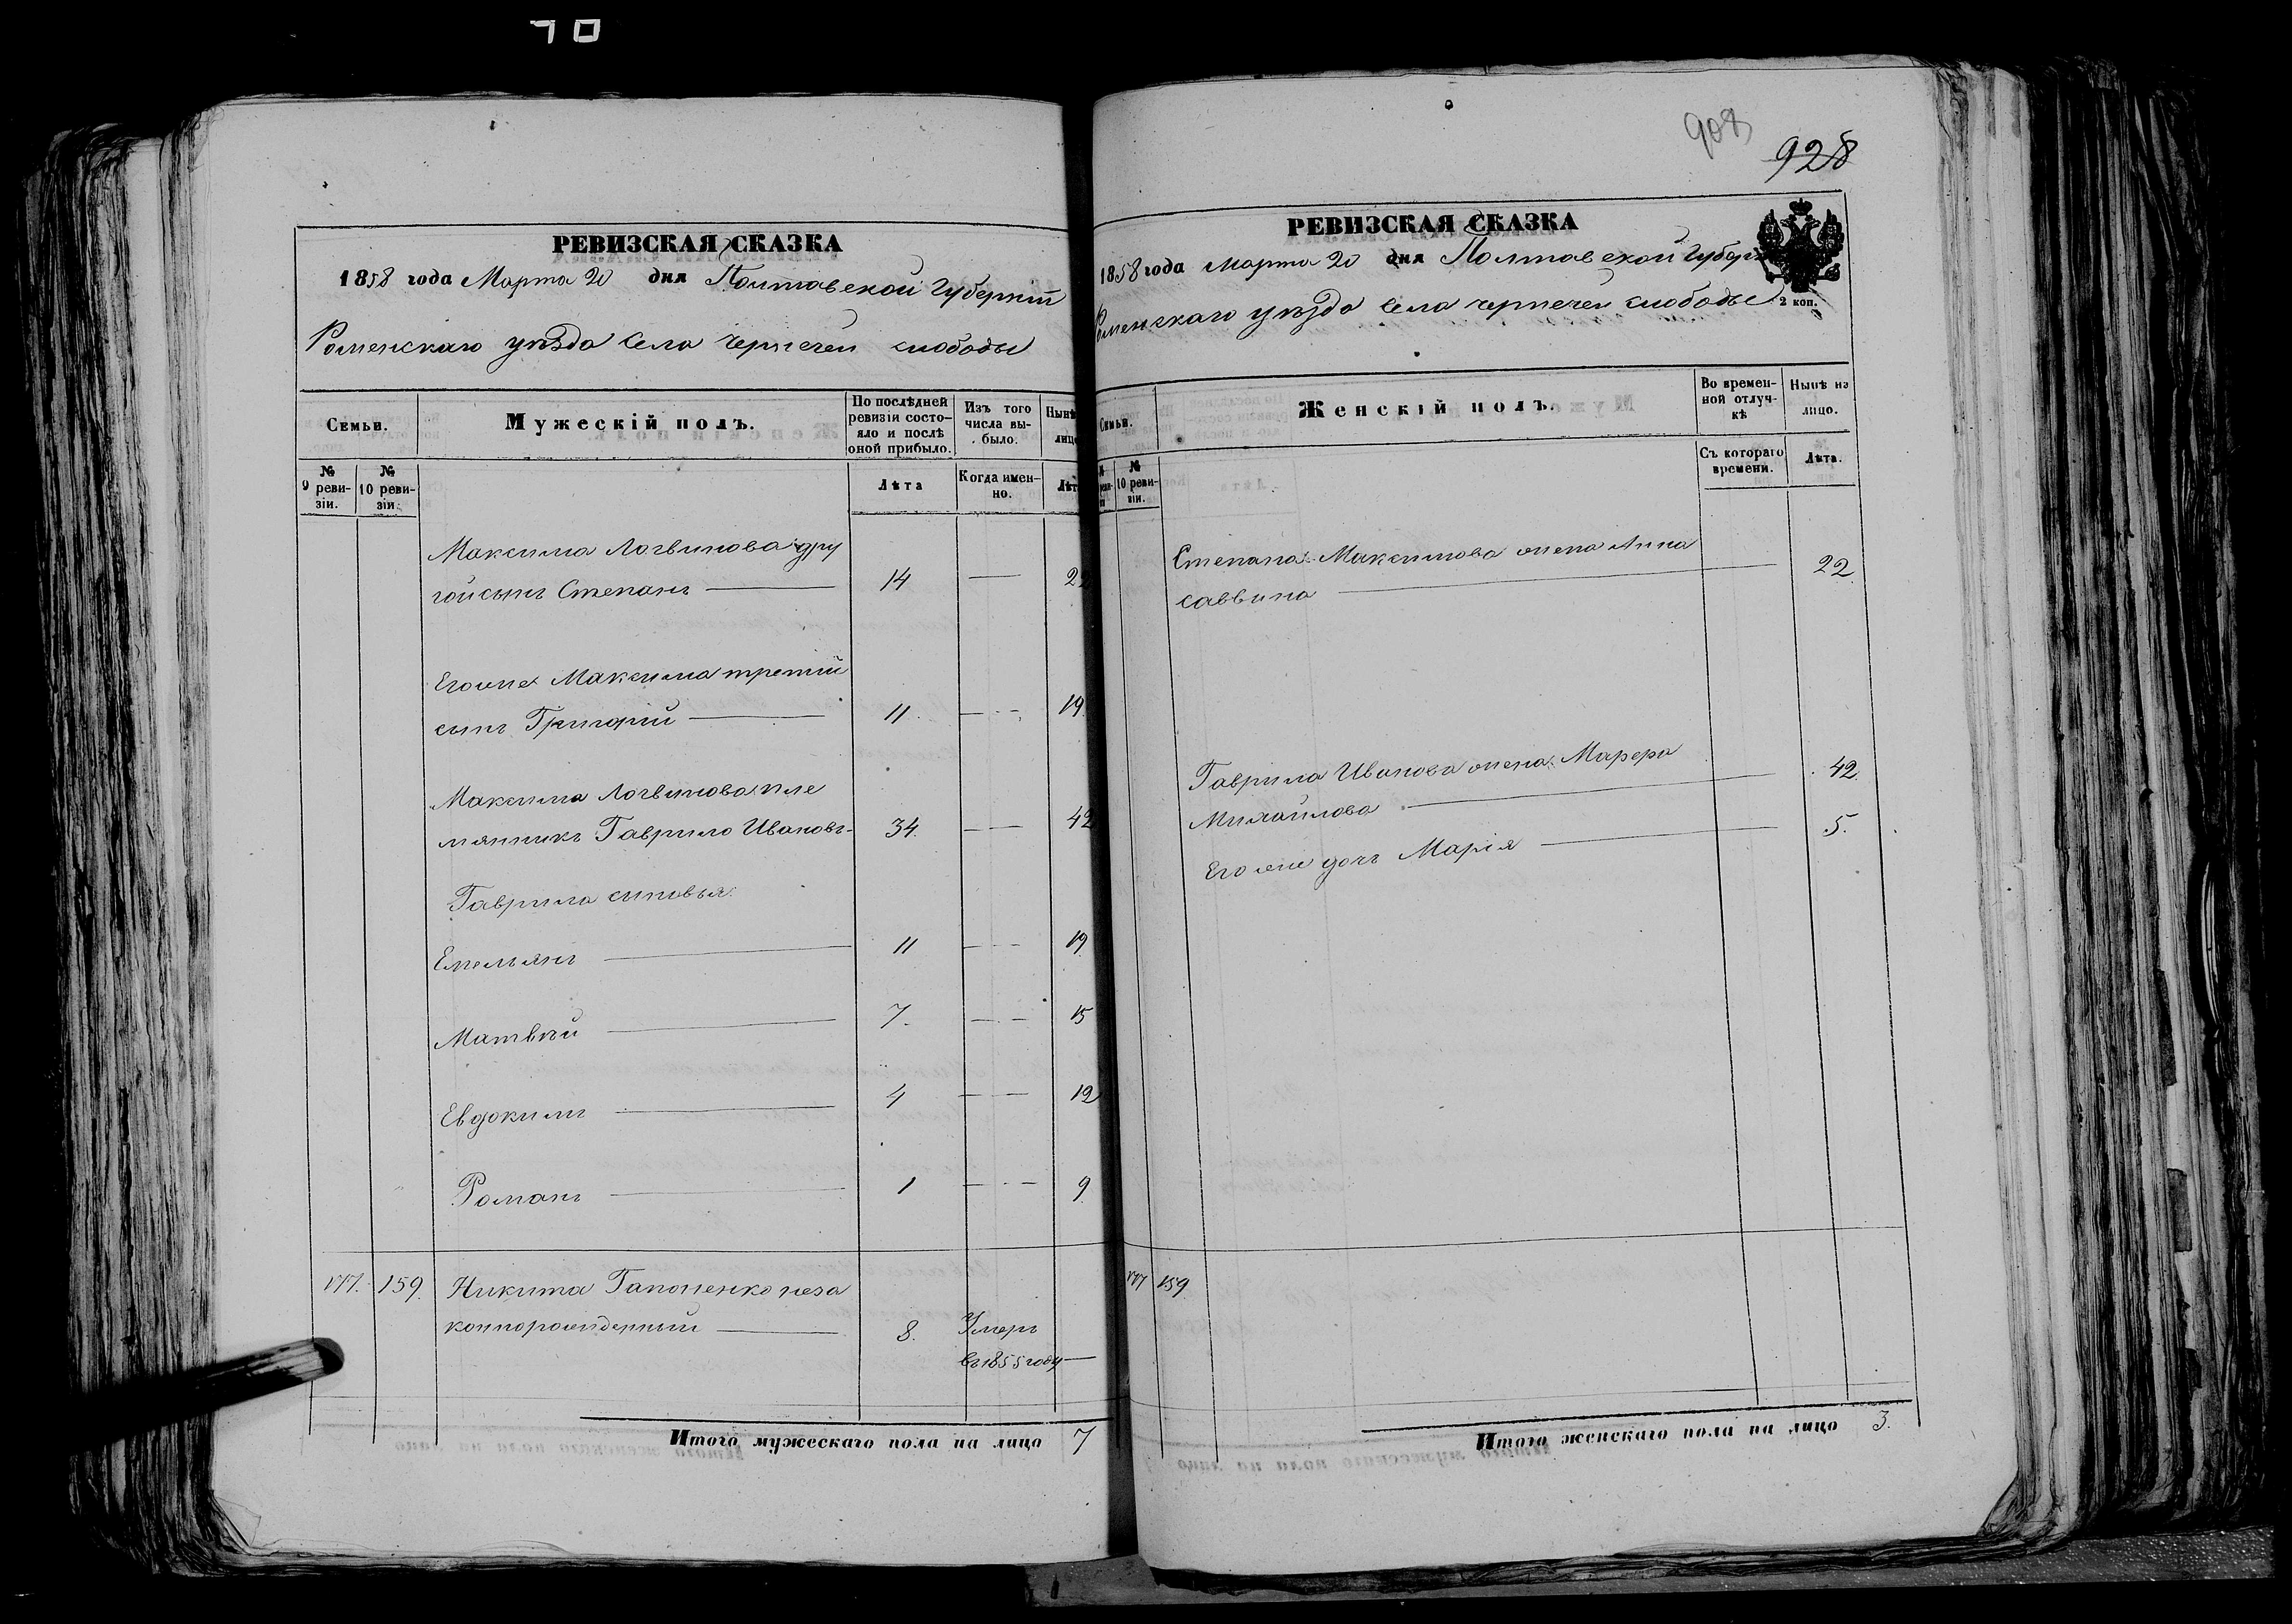 70
РЕВИЗСКАЯ СКАЗКА
1858 года Марта 20 дня Полтавской Губерніи
Роменскаго уѣзда села Чернечей слободы
Семьи.
Мужескій полъ.
По послѣдней ревизіи состояло и послѣ оной прибыло.
Изъ того числа выбыло.
Нынѣ
лицо
№ 9 ревизіи.
№ 10 ревизіи.
Лѣта
Когда именно.
Лѣт
Максима Логвинова дру
гой сынъ Степанъ 14 22
Его же Максима третій
сынъ Григорій 11. 19.
Максима Логвинова пле
мянникъ Гаврило Ивановъ 34. 42
Гаврила сыновья:
Емельянъ 11 19
Матвѣй 7. 15
Евдокимъ 4 12
Романъ 1 9
177. 159. Никита Гапоненко неза
коннорожденный 8. Умеръ
въ 1855 году
Итого мужескаго пола на лицо 7
908
928
РЕВИЗСКАЯ СКАЗКА
1858 года Марта 20 дня Полтавской Губерн
Роменскаго уѣзда села Чернечей слободы
2 коп.
Семьи.
Женскій полъ.
Во временной отлучкѣ
Нынѣ на лицо.
№ 10 ревизіи.
Съ котораго времени.
Лѣта.
Степана Максимова жена Анна
Саввина 22.
Гаврила Иванова жена
Михайлова 42.
Его же дочь Марія 5.
177 159
Итого женскаго пола на лицо 3.